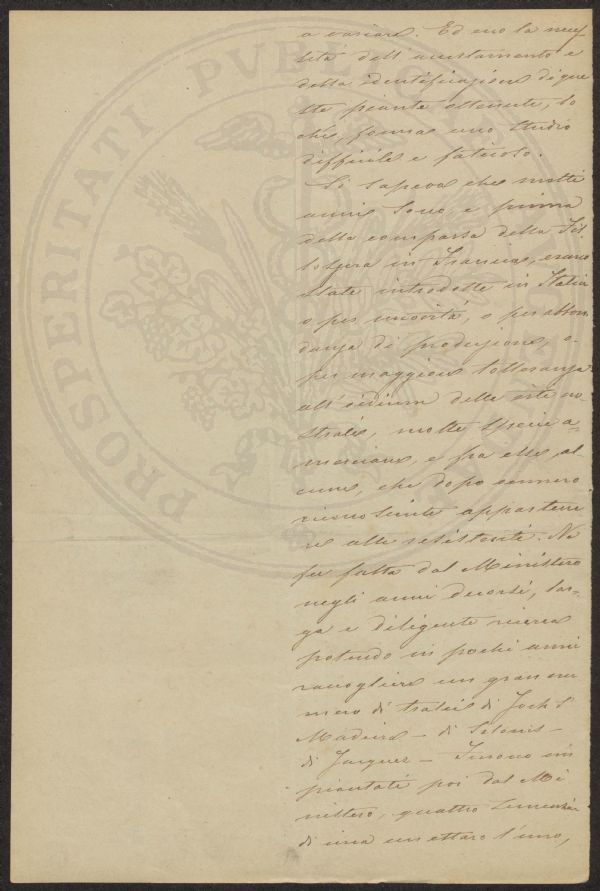 a variare. Ed ecco la neces
sità dell'accertamento e
della identificazione di que
ste piante ottenute, lo
chè, forma uno studio
difficile e faticoso.
Si sapeva che molti
anni sono, e prima
della comparsa della Fil
lossera in Francia, erano
state introdotte in Italia
o per novità, o per abbon
danza di produzione, o
per maggiore tolleranza
all'oidium delle viti no
strali, molte specie a-
mericane, e fra esse, al
cune, che dopo vennero
riconosciute appartene
re alle resistenti. Ne
fu fatta dal Ministero
negli anni decorsi, lar-
ga e diligente ricerca
potendo in pochi anni
raccogliere un gran nu
mero di tralci di York's
Madeira – di Solonis –
di Jacquez – Furono im
piantati poi dal Mi
nistero, quattro Semenzai
di una un ettaro l'uno,
PROSPERITATI PVBLICAE